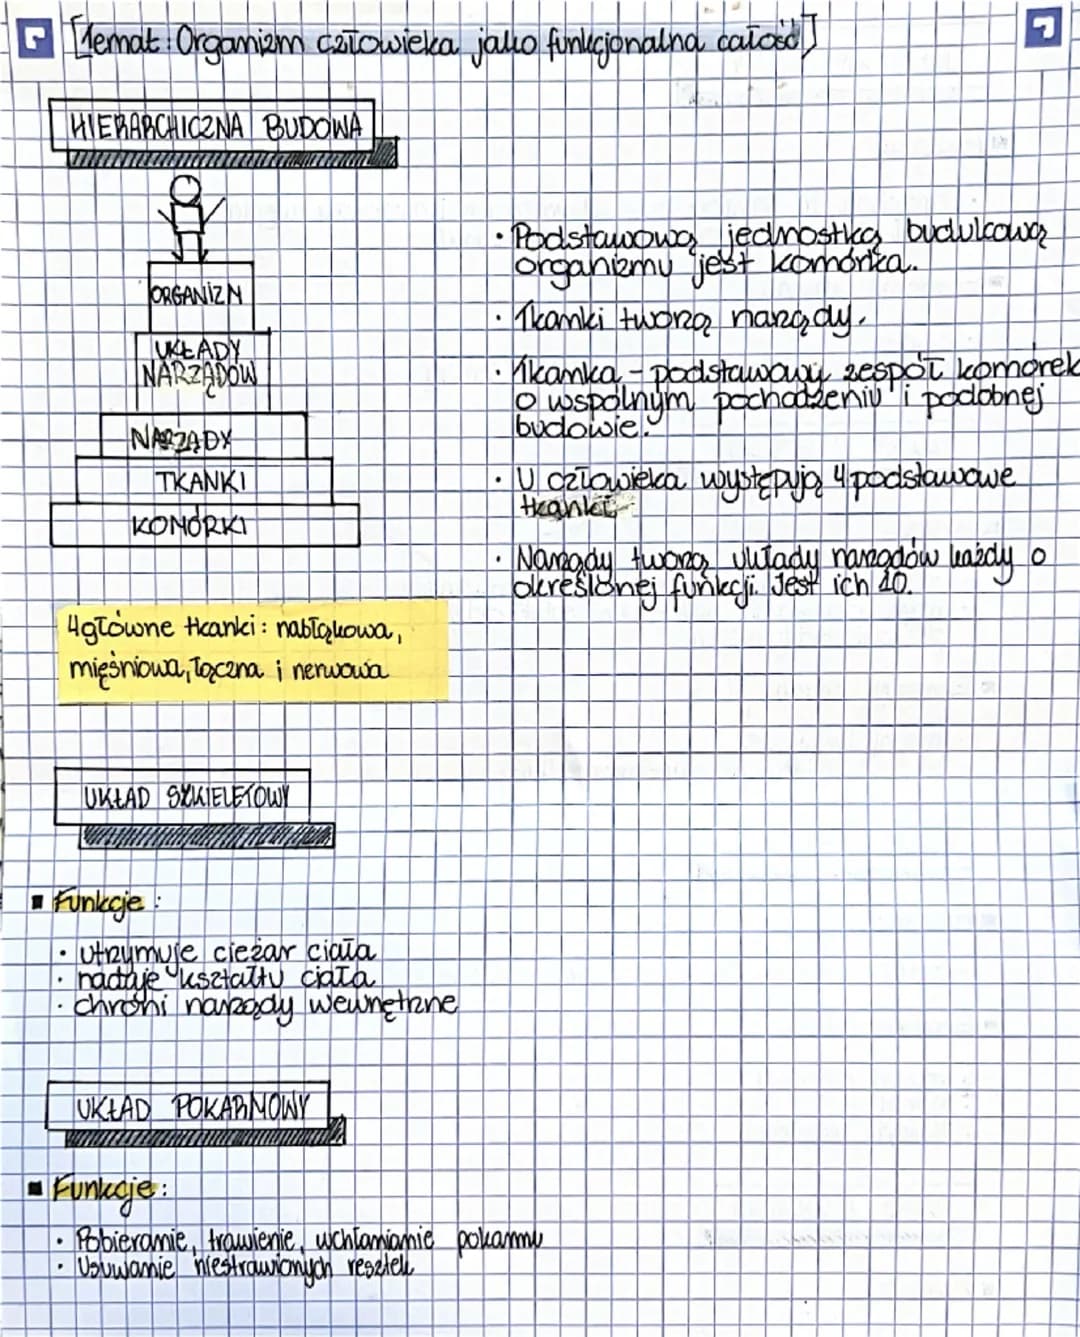 [Temat: Organizm człowieka jako funkcjonalna całość]
HIERARCHICZNA BUDOWA
ORGANIZM
UKŁADY
NARZĄDÓW
NARZĄDY
TKANKI
KOMÓRKI
• Podstawową jednostką budulcową
organizmu jest komórka.
• Tkanki tworzą narządy.
• Tkanka - podstawowy zespół komórek
o wspólnym pochodzeniu i podobnej
budowie.
• U człowieka występują 4 podstawowe
tkanki.
• Narządy tworzą układy narządów każdy o
określonej funkcji. Jest ich 10.
4 główne tkanki: nabłąkowa,
mięśniowa, łączna i nerwowa
UKŁAD SZKIELETOWY
▪ Funkcje:
• utrzymuje ciężar ciała
• nadaje kształtu ciała
• chroni narządy wewnętrzne
UKŁAD POKARMOWY
▪ Funkcje:
• Pobieranie, trawienie, wchłanianie pokarmu
• Usuwanie niestrawionych resztek